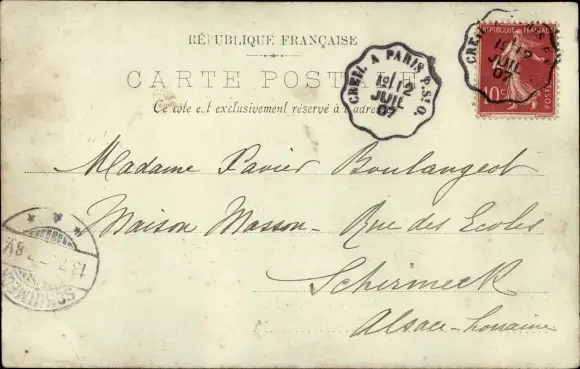 RÉPUBLIQUE FRANÇAISE
CARTE POSTALE
Ce côté est exclusivement réservé à l'adresse
CREIL A PARIS P.ST O.
12
JUIL
07
CREIL
12
JUIL
07
RÉPUBLIQUE FRANÇAISE
10 c
POSTES
Madame Xavier Boulangeot
Maison Masson - Rue des Ecoles
Schirmeck
Alsace-Lorraine
13.7.
8V
SCHIRMECK